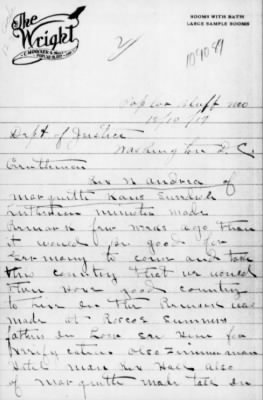 The Wright
ROOMS WITH BATH
LARGE SAMPLE ROOMS
2/
Poplar Bluff Mo
12/10/17
Dept of Justice
Washington D. C.
Gentlemen
Rev H Andrea of
Marquitte Kans
Lutheran minister made
Remark few weeks ago than
it would be good for
Germany to come and take
this country that we would
then have good country
to live in This Remark was
made at Roscoe Summers
father in Law See Him for
verification also Zimmerman
Hotel man Rex Hall also
of Marquitte made talk in